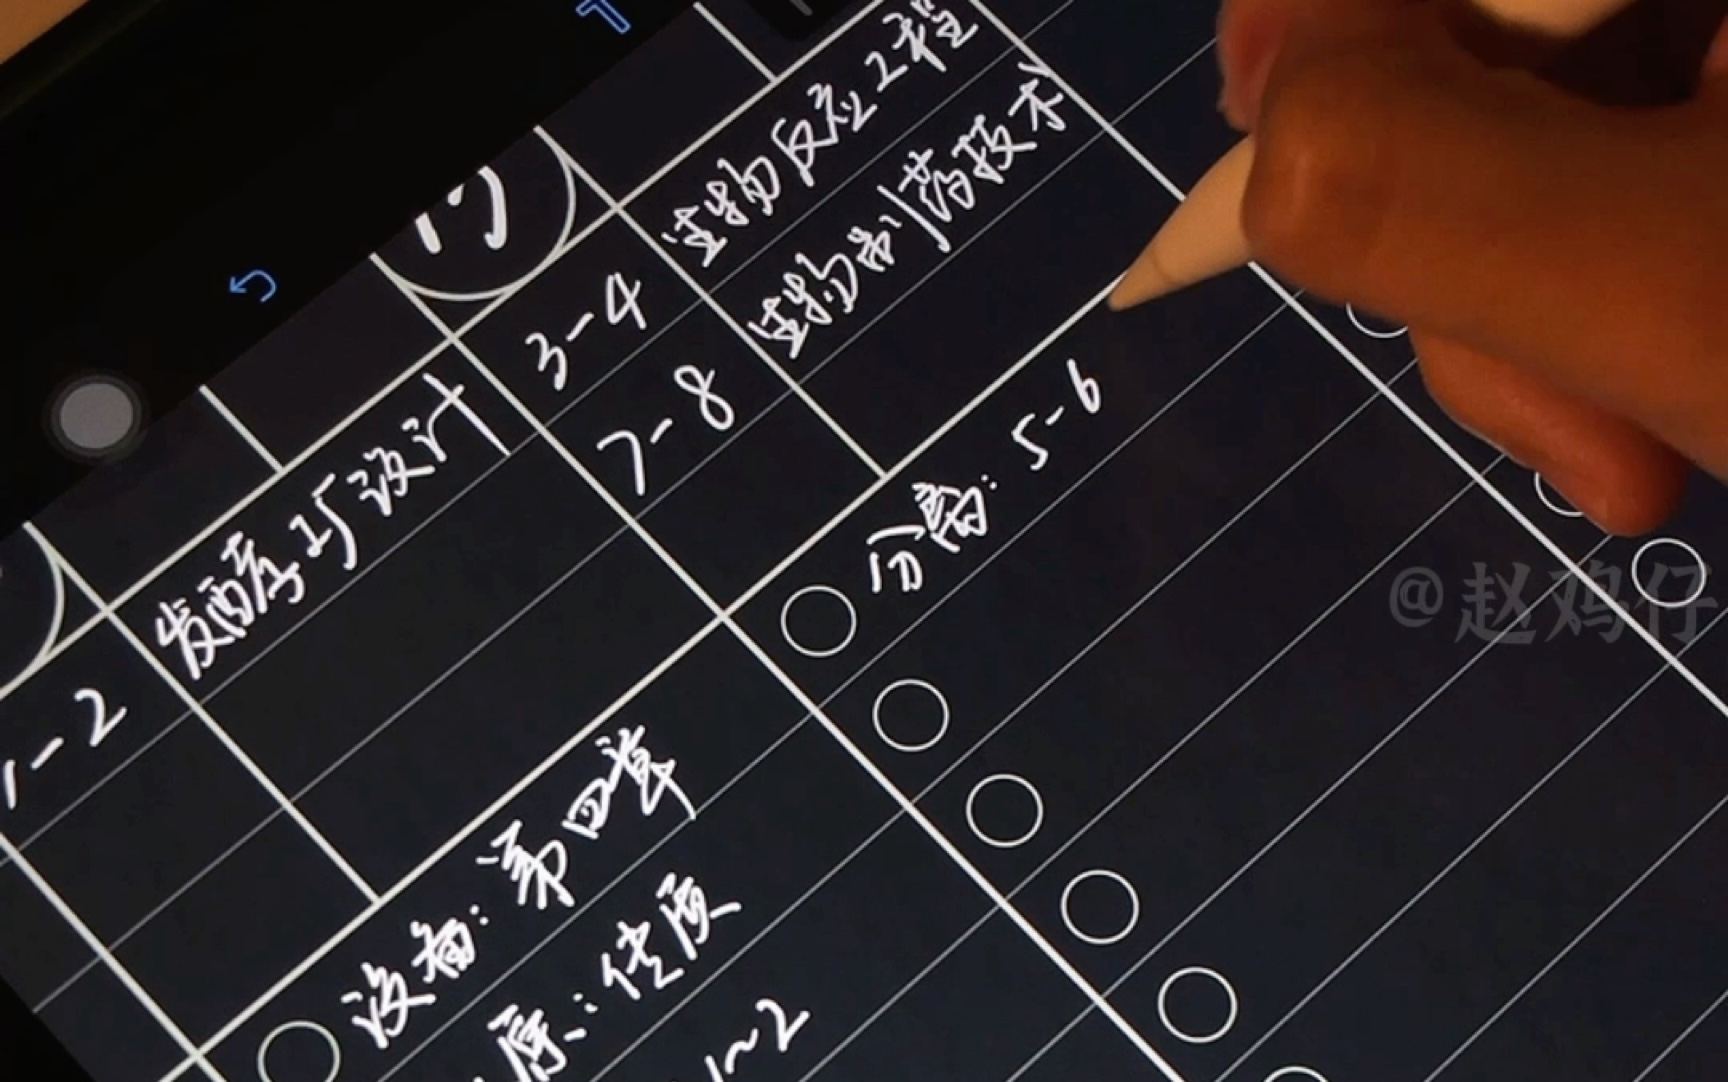 3-4 生物反应工程
7-8 生物制药技术
1-2 发酵工厂设计
分离：5-6
设备：第四章
原：传质
1~2
@赵鸡仔